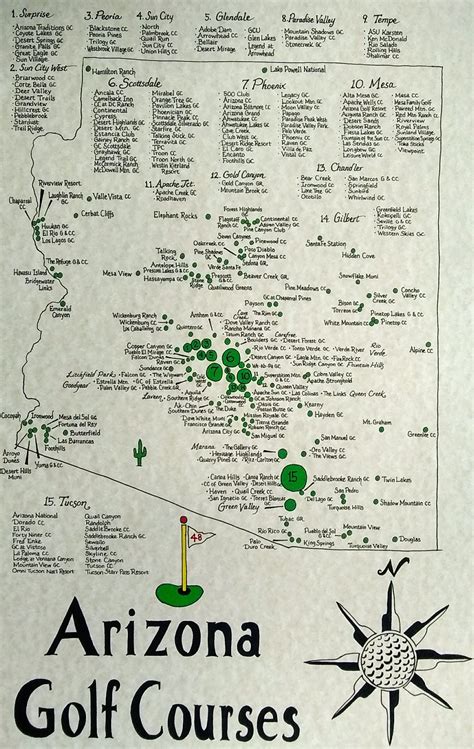 1. Surprise
Arizona Traditions GC
Coyote Lakes GC
Desert Springs GC
Granite Falls GC
Great Eagle GC
Sun Village
2. Sun City West
Briarwood CC
Corte Bella GC
Deer Valley
Desert Trails
Grandview
Hillcrest
Pebblebrook
Stardust
Trail Ridge
3. Peoria
Blackstone CC
Peoria Pines
Trilogy GC
Westbrook Village CC
4. Sun City
North
Palmbrook CC
Quail Run
Sun City CC
Union Hills CC
5. Glendale
Adobe Dam
Arrowhead CC
Bellair
Desert Mirage
GCU
Glen Lakes
Legend at
Arrowhead
8. Paradise Valley
Mountain Shadows GC
Paradise Valley CC
9. Tempe
ASU Karsten
Ken McDonald
Rio Salado
Rolling Hills
Shalimar CC
Hamilton Ranch
Lake Powell National
6. Scottsdale
Ancala CC
Camelback Inn
Cypress
Desert Highlands GC
Desert Mtn. GC
Estancia Club
Gainey Ranch GC
GC Scottsdale
Grayhawk GC
Legend Trail GC
McCormick Ranch GC
McDowell Mtn. GC
Mirabel GC
Orange Tree GC
Pavilion Lakes GC
Phoenician GC
Pinnacle Peak CC
Scottsdale Silverado
Starfire GC
Talking Stick GC
Terravita GC
TPC
Troon CC
Troon North GC
Whisper Rock GC
7. Phoenix
500 Club
Arizona CC
Arizona Biltmore CC
Arizona Grand
Ahwatukee CC
Cave Creek
Club West GC
Desert Ridge GC
Encanto
Foothills GC
Legacy GC
Lookout Mtn GC
Moon Valley CC
Palo Verde
Papago
Paradise Valley Park
Phoenix CC
10. Mesa
Alta Mesa GC
Apache Wells CC
Arizona Golf Resort
Augusta Ranch GC
Desert Sands GC
Dobson Ranch GC
Fountain of the Sun CC
Las Sendas GC
Longbow GC
Leisure World CC
Mesa CC
Painted Mtn. GC
Red Mtn Ranch CC
Riverview
Royal Palms
Superstition Springs GC
Toka Sticks
Viewpoint
11. Apache Jct.
Apache Creek GC
Roadhaven
12. Gold Canyon
Gold Canyon GR
Mountain Brook GC
13. Chandler
Bear Creek
Ironwood CC
Lone Tree GC
Ocotillo GC
San Marcos GC
Springfield
Sunbird
14. Gilbert
Greenfield Lakes
Kokopelli GC
Seville G + CC
Trilogy GC
Western Skies GC
Riverview Resort
Laughlin Ranch GC
Chaparral CC
Valle Vista CC
Huukan GC
El Rio G & CC
Los Lagos GC
Cerbat Cliffs
The Refuge G & CC
Havasu Island
Bridgewater Links
Mesa View
Emerald Canyon
Elephant Rocks
Forest Highlands
Flagstaff Ranch GC
Continental CC
Aspen Valley GC
Pine Canyon
Seven Canyons
Oakcreek CC
Pinewood CC
Talking Rock
Canyon Mesa CC
Sedona GR
Antelope Hills
Verde Santa Fe
Prescott Lakes G & CC
Prescott G & CC
Beaver Creek GR
Quailwood Greens
Santa Fe Station
Hidden Cove
Snowflake Muni
Pine Meadows CC
GC at Chaparral Pines
Payson GC
Silver Creek GC
Concho Valley CC
Bison GC
Torreon GC
Pinetop Lakes GC
White Mountain CC
Pinetop CC
Alpine CC
Wickenburg Ranch
Wickenburg CC
Los Caballeros GC
Quintero GC
Anthem G + CC
Dove Valley Ranch GC
Rancho Manana
Boulders
Desert Forest GC
Copper Canyon GC
Desert Canyon GC
Eagle Mtn. GC
FireRock CC
Sun Ridge Canyon GC
Fountain Hills
Rio Verde
Litchfield Park
Falcon GC
Goodyear
Estrella Mtn. GC
GC of Estrella
Palm Valley GC
Pebble Creek GC
Superstition Mtn GC
Cobre Valley CC
Apache Stronghold
Apache Sun GC
Las Colinas
The Links
Queen Creek
Laveen
Southern Ridge GC
Southern Dunes GC
The Duke
Ak-Chin
Oasis GC
Mission Royale GC
Poston Butte GC
Kearny
Hayden GC
Dave White Muni
Francisco Grande GC
Tierra Grande
Arizona City GC
San Miguel GC
Mt. Graham GC
San Manuel GC
Greenlee CC
Cocopah
Ironwood
Mesa del Sol GC
Fortuna del RAY
Butterfield GC
Las Barrancas
Foothills
Arroyo Dunes
Desert Hills Muni
Yuma G & CC
Marana
The Gallery GC
Heritage Highlands
Quarry Pines GC
Ritz-Carlton GC
Oro Valley CC
The Views
15
Canoa Hills GC
Canoa Ranch GC
CC of Green Valley
Desert Hills
Haven
Quail Creek CC
San Ignacio GC
Torres Blancas
Green Valley
Saddlebrooke Ranch GC
Twin Lakes
Del Lago GC
San Pedro
Turquoise Hills
Shadow Mountain CC
Tubac GR
Rio Rico GC
Palo Duro Creek GC
Kino Springs
Pueblo del Sol CC
Mountain View
Turquoise Valley
Douglas
15. Tucson
Arizona National
Dorado CC
El Rio
Forty Niner CC
Fred Enke
GC at Vistoso
La Paloma CC
Lodge at Ventana Canyon
Mountain View GC
Omni Tucson Nat'l Resort
Quail Canyon
Randolph
SaddleBrooke CC
Saddlebrooke Ranch GC
Sewailo
Silverbell
Skyline CC
Stone Canyon
Tucson CC
Tucson Starr Pass Resort
48
N
Arizona
Golf Courses